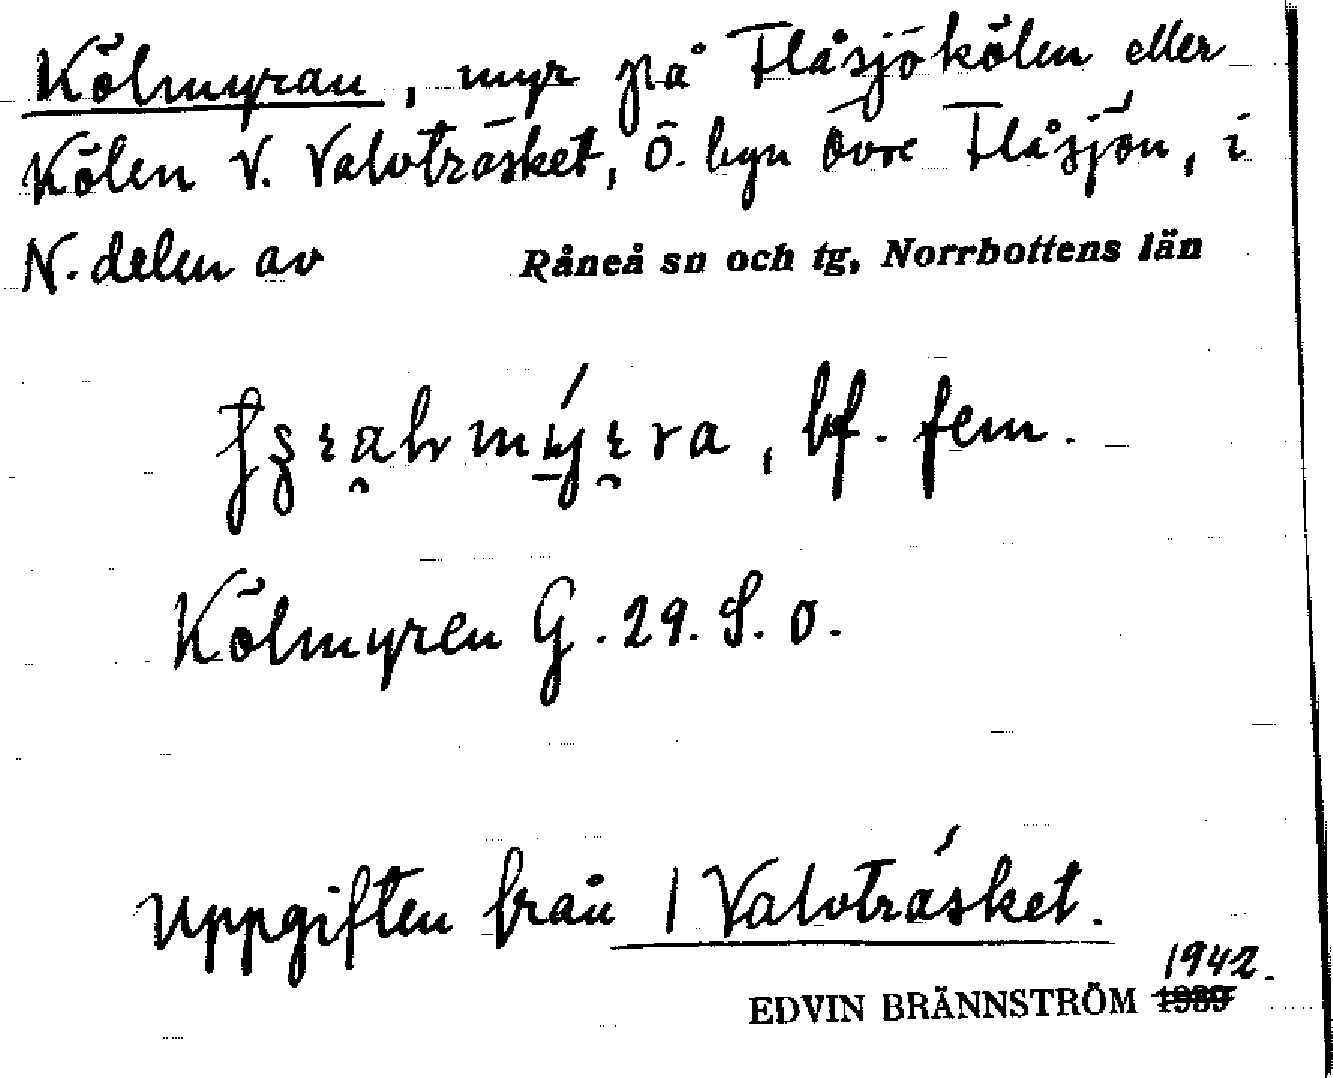 Kölmyran, myr på Flåsjökölen eller
Kölen V. Valvträsket, Ö. byn övre Flåsjön, i
N. delen av Råneå sn och tg, Norrbottens län
bf. fem.
Kölmyren G. 29. S. O.
Uppgiften från 1 Valvträsket.
1942.
EDVIN BRÄNNSTRÖM 1939